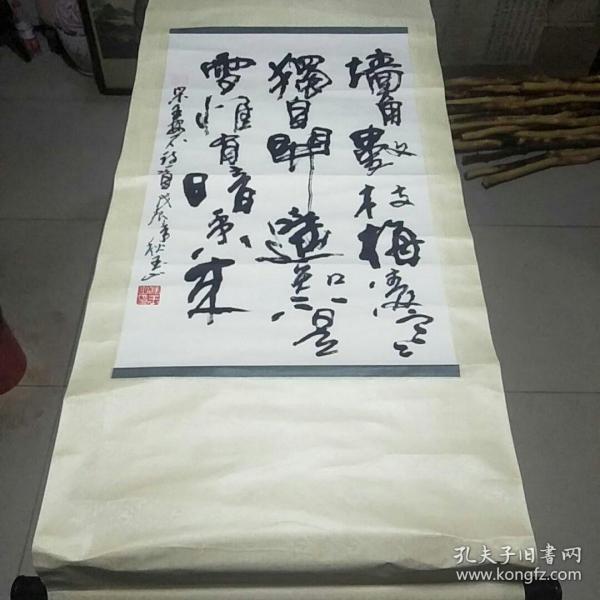 墙角數枝梅凌寒
獨自開遥知不是
雪惟有暗香来
宋王安石詩戊辰年秋
孔夫子旧书网
www.kongfz.com